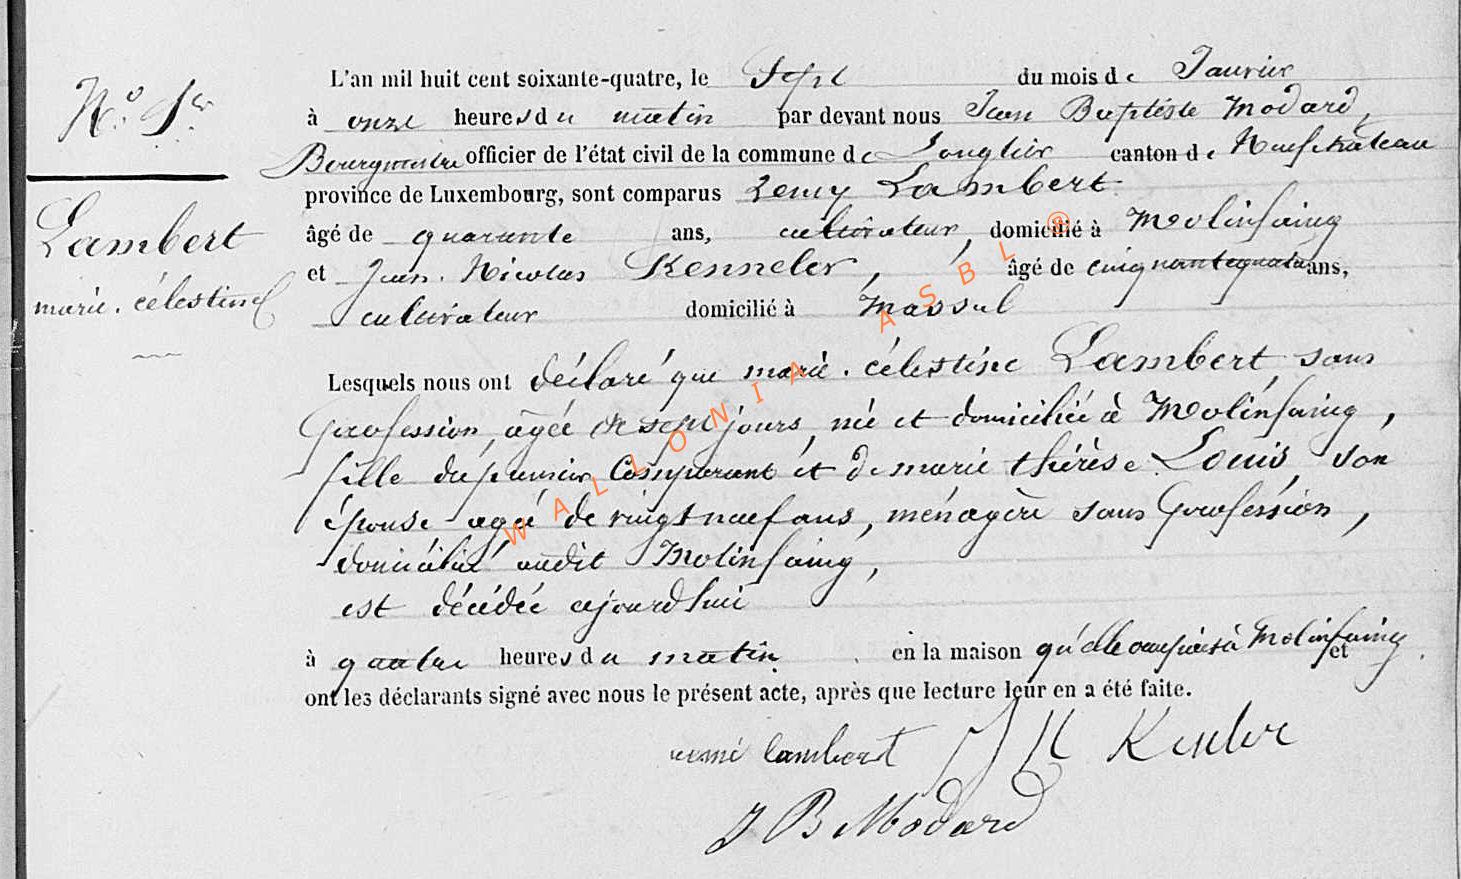 N.º 1.er
Lambert
marie. célestine
L'an mil huit cent soixante-quatre, le Sept du mois de Janvier
à onze heures du matin par devant nous Jean Baptiste Modard,
Bourgmestre officier de l'état civil de la commune de Longlier canton de Neufchateau
province de Luxembourg, sont comparus Remy Lambert
âgé de quarante ans, cultivateur, domicilié à Molinfaing
et Jean. Nicolas Kenneler, âgé de cinquantequatre ans,
cultivateur domicilié à Massul
Lesquels nous ont déclaré que marie. célestine Lambert, sans
profession, agée de sept jours, née et domiciliée à Molinfaing,
fille du premier Comparant et de marie thérèse Louis son
épouse agée de vingt neuf ans, ménagère sans profession,
domiciliée audit Molinfaing,
est décédée cejourd'hui
à quatre heures du matin en la maison qu'elle occupait à Molinfaing et
ont les déclarants signé avec nous le présent acte, après que lecture leur en a été faite.
remi lambert J N Kenler
J B Modard
WALLONIA ASBL ®